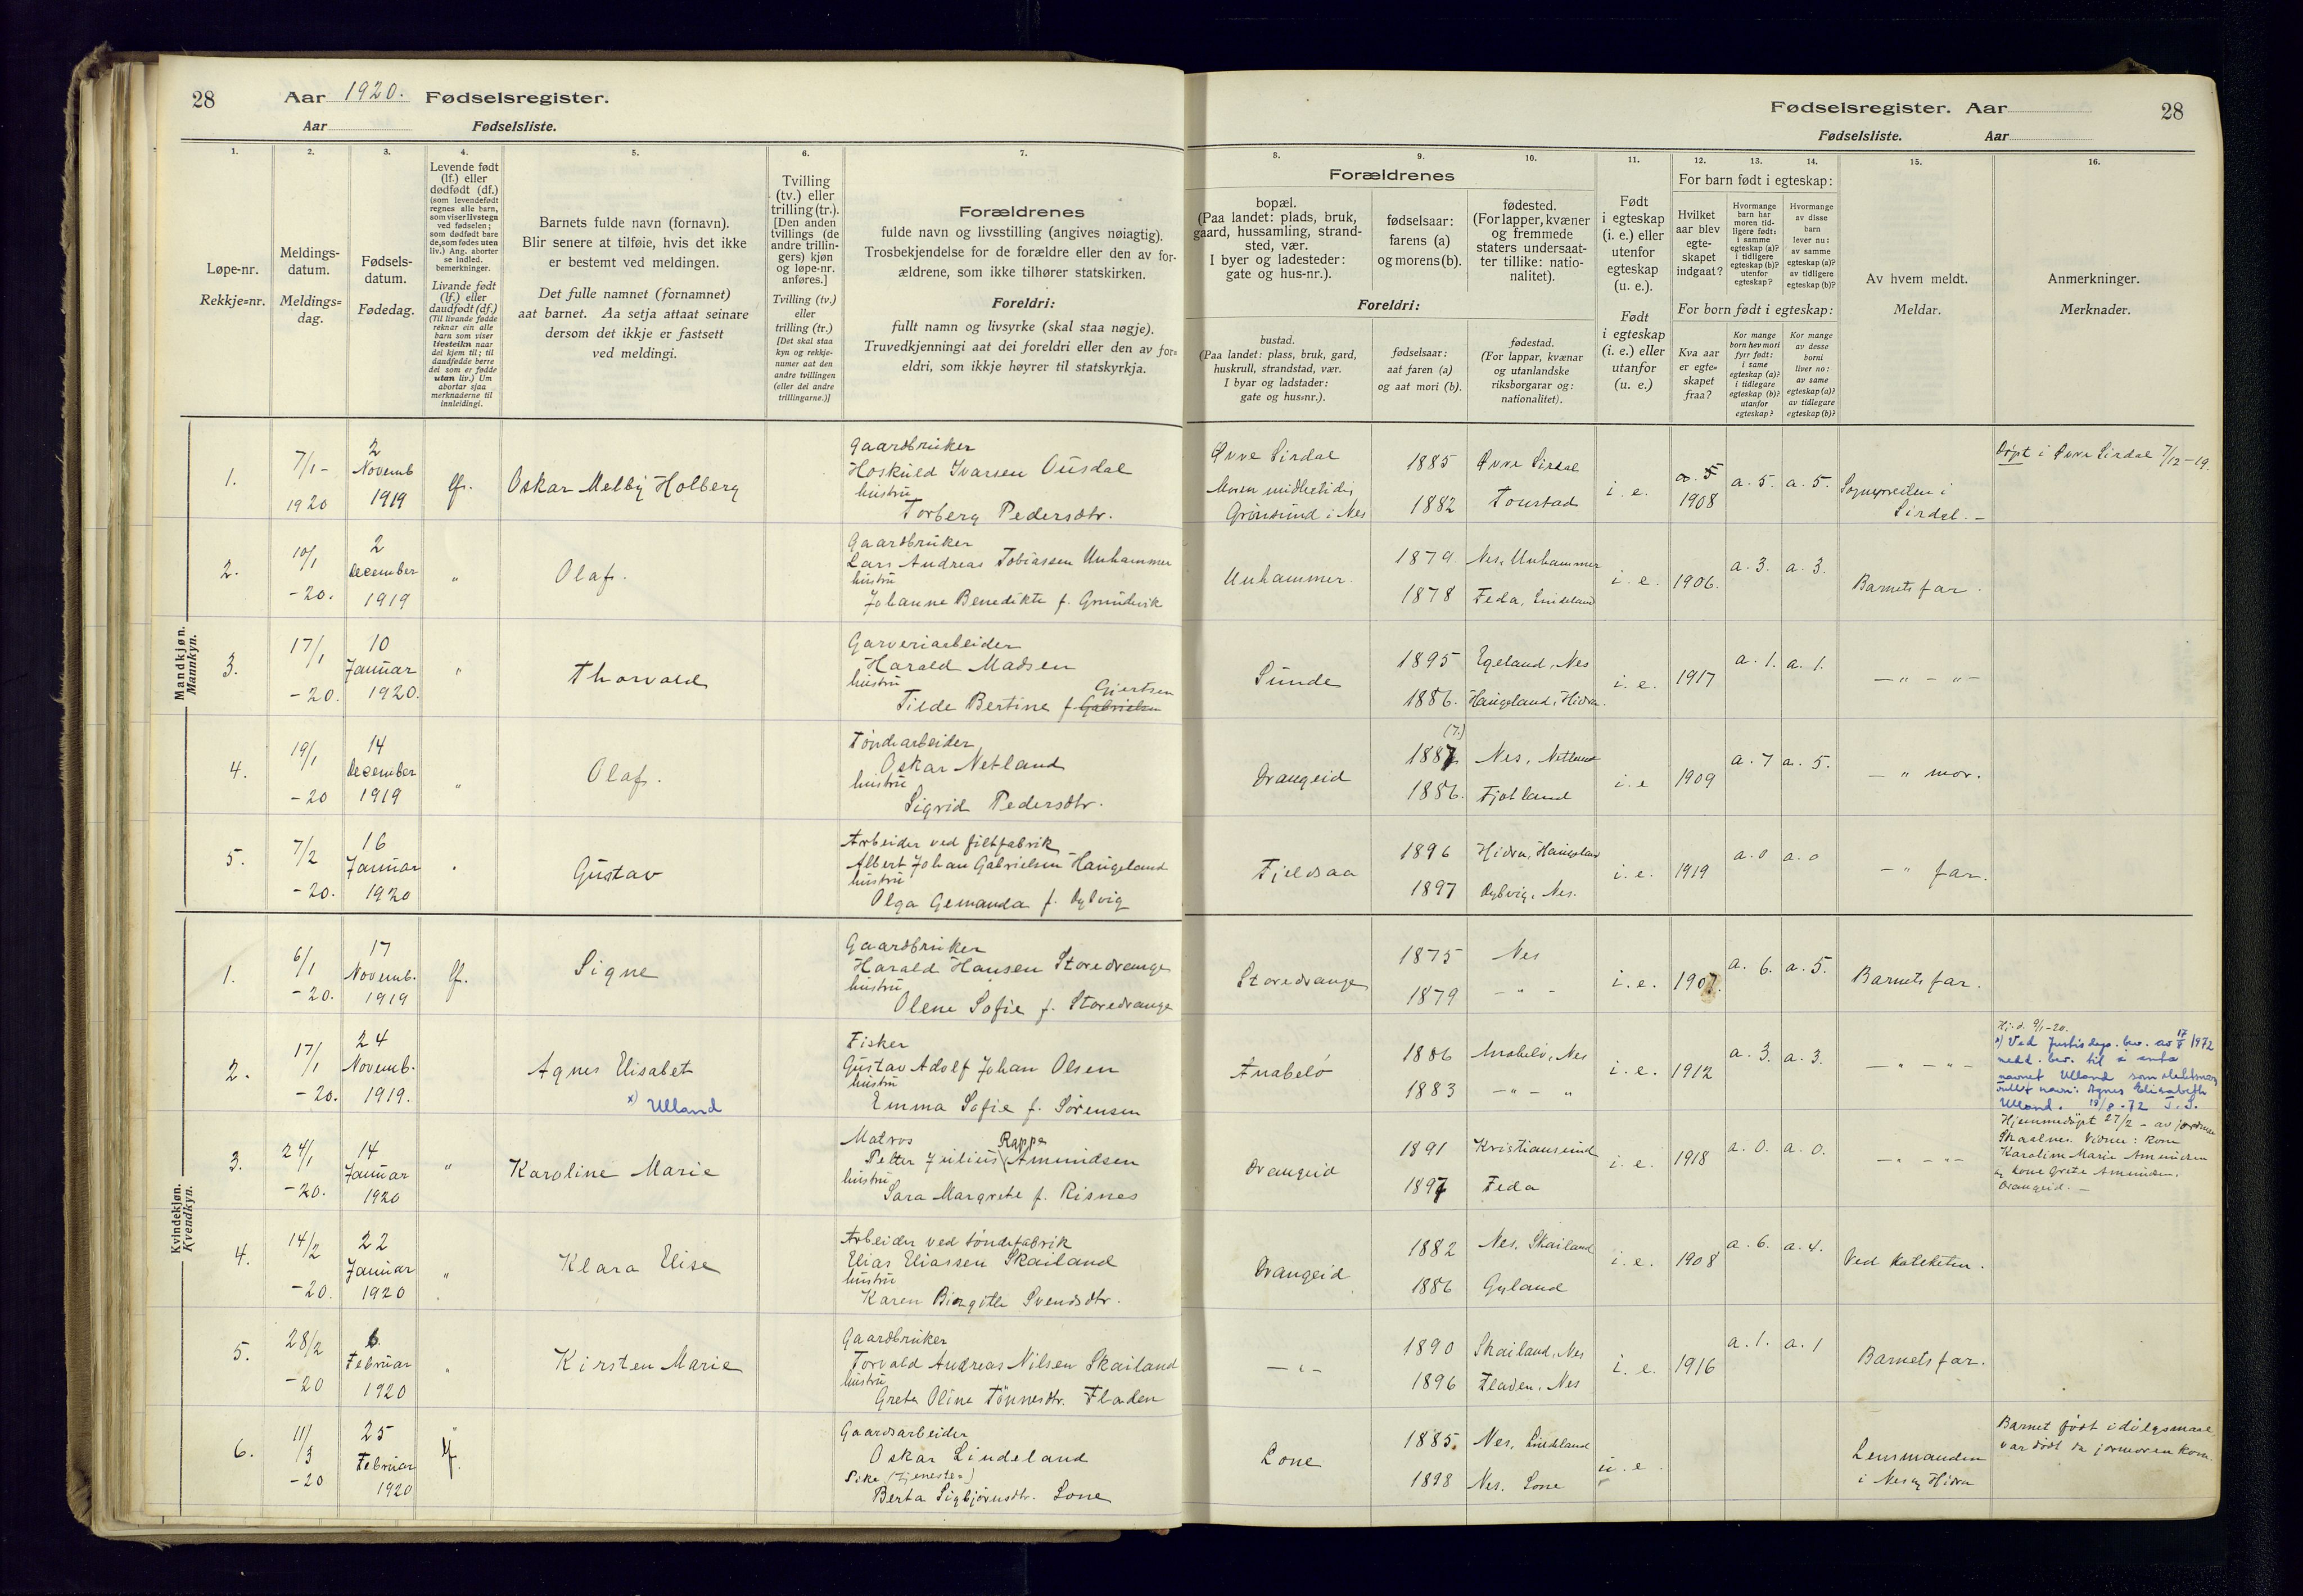 28 Aar 1920. Fødselsregister.
Aar Fødselsliste.
1. 2. 3. 4. 5. 6. 7.
Løpe-nr.
Rekkje=nr.
Meldings-
datum.
Meldings=
dag.
Fødsels-
datum.
Fødedag.
Levende født
(lf.) eller
dødfødt (df.)
(som levendefødt
regnes alle barn,
som viser livstegn
ved fødselen;
som dødfødt bare
de, som fødes uten
liv.) Ang. aborter
se indled.
bemerkninger.
Livande født
(lf.) eller
daudfødt (df.)
(Til livande fødde
reknar ein alle
barn som viser
livsteikn naar
dei kjem til; til
daudfødde berre
dei som er fødde
utan liv.) Um
abortar sjaa
merknaderne til
innleidingi.
Barnets fulde navn (fornavn).
Blir senere at tilføie, hvis det ikke
er bestemt ved meldingen.
Det fulle namnet (fornamnet)
aat barnet. Aa setja attaat seinare
dersom det ikkje er fastsett
ved meldingi.
Tvilling
(tv.) eller
trilling (tr.).
[Den anden
tvillings (de
andre trillin-
gers) kjøn
og løpe-nr.
anføres.]
Tvilling (tv.)
eller
trilling (tr.)
[Det skal staa
kyn og rekkje-
numer aat den
andre tvillingen
(eller dei andre
trillingarne.)]
Forældrenes
fulde navn og livsstilling (angives nøiagtig).
Trosbekjendelse for de forældre eller den av for-
ældrene, som ikke tilhører statskirken.
Foreldri:
fullt namn og livsyrke (skal staa nøgje).
Truvedkjenningi aat dei foreldri eller den av for=
eldri, som ikkje høyrer til statskyrkja.
Mandkjøn.
Mannkyn.
1. 7/1- 1920 2 Novemb 1919 lf. Oskar Melby Holberg
Gaardbruker
Hoskuld Ivarsen Ousdal
hustru
Torberg Pedersdtr.
2. 10/1 -20. 2 December 1919 " Olaf.
Gaardbruker
Lars Andreas Tobiassen Unhammer
hustru
Johanne Benedikte f. Grundvik
3. 17/1 -20. 10 Januar 1920. " Thorvald
Garveriarbeider
Harald Madsen
hustru
Gjertsen
Tilde Bertine f. Gabrielsen
4. 19/1 -20 14 December 1919 " Olaf.
Tøndearbeider
Oskar Netland
hustru
Sigrid Pedersdtr.
5. 7/2 -20. 16 Januar 1920 " Gustav
Arbeider ved filtfabrik
Albert Johan Gabrielsen Haugeland
hustru
Olga Gemanda f. Dybvig
Kvindekjøn.
Kvendkyn.
1. 6/1 -20. 17 Novemb. 1919 lf. Signe
Gaardbruker
Harald Hansen Storedrange
hustru
Olene Sofie f. Storedrange
2. 17/1 -20. 24 Novemb. 1919. Agnes Elisabet
x) Ulland
Fisker
Gustav Adolf Johan Olsen
hustru
Emma Sofie f. Sørensen
3. 24/1 -20. 14 Januar 1920 " Karoline Marie
Matros
Rappe
Petter Julius Amundsen
hustru
Sara Margrete f. Risnes
4. 14/2 -20. 22 Januar 1920 " Klara Elise
Arbeider ved tøndefabrik
Elias Eliassen Skailand
hustru
Karen Birgitte Svendsdtr.
5. 28/2 -20 6. Februar 1920 " Kirsten Marie
Gaardbruker
Torvald Andreas Nilsen Skailand
hustru
Grete Oline Tønnesdtr. Fladen
6. 11/3 -20 25 Februar 1920
Gaardsarbeider
Oskar Lindeland
Pike (tjeneste=)
Berta Sigbjørnsdtr. Lone
Fødselsregister. Aar 28
Fødselsliste. Aar
8. 9. 10. 11. 12. 13. 14. 15. 16.
Forældrenes
bopæl.
(Paa landet: plads, bruk,
gaard, hussamling, strand-
sted, vær.
I byer og ladesteder:
gate og hus-nr.).
fødselsaar:
farens (a)
og morens (b).
fødested.
(For lapper, kvæner
og fremmede
staters undersaat-
ter tillike: natio-
nalitet).
Foreldri:
bustad.
(Paa landet: plass, bruk, gard,
huskrull, strandstad, vær.
I byar og ladstader:
gate og hus=nr.).
fødselsaar:
aat faren (a)
og aat mori (b).
fødestad.
(For lappar, kvænar
og utanlandske
riksborgarar og:
nationalitet).
Født
i egteskap
(i. e.) eller
utenfor
egteskap
(u. e.).
Født
i egteskap
(i. e.) eller
utanfor
(u. e.)
For barn født i egteskap:
Hvilket
aar blev
egte-
skapet
indgaat?
Hvormange
barn har
moren tid-
ligere født:
i samme
egteskap (a)?
i tidligere
egteskap (b)?
utenfor
egteskap?
Hvormange
av disse
barn
lever nu:
av samme
egteskap (a)?
av tidligere
egteskap (b)?
For born født i egteskap:
Kva aar
er egte=
skapet
fraa?
Kor mange
born hev mori
fyrr født:
i same
egteskap (a)?
i tidlegare
egteskap (b)?
utanfor
egteskap?
Kor mange
av desse
borni
liver no:
av same
egteskap (a)?
av tidlegare
egteskap (b)?
Av hvem meldt.
Meldar.
Anmerkninger.
Merknader.
Øvre Sirdal 1885 Øvre Sirdal i. e. 1908 a. 5. a. 5. Sognepresten i Sirdal. -
Moren midlertidig
Grønsund i Nes 1882 Tonstad
Døpt i Øvre Sirdal 7/12-19.
Unhammer. 1879. Nes, Unhammer i. e. 1906. a. 3. a. 3. Barnets far.
1878 Feda, Lindeland
Sunde 1895 Egeland, Nes i. e. 1917 a. 1. a. 1. - " - " -
1886. Haugeland, Hidra.
(7.)
Drangeid 1887 Nes, Netland i. e 1909 a. 7 a. 5. - " mor.
1886. Fjotland
Fjeldsaa 1896 Hidra, Haugeland i. e. 1919 a. 0 a. 0 - " far.
1897 Dybvig, Nes.
Storedrange 1875 Nes i. e. 1907. a. 6. a. 5. Barnets far.
1879 - " -
Anabelø 1886 Anabelø, Nes i. e. 1912 a. 3. a. 3. - " - " -
1883 - " - "
Hj. d. 9/1-20.
x) Ved Justisdep. bev. av 17/8 1972
medd. bev. til å anta
navnet Ulland som slektsnavn
fullt navn: Agnes Elisabeth
Ulland. 18/8-72 T.S.
Drangeid 1891 Kristiansund i. e. 1918 a. 0. a. 0. - " - " -
1897 Feda
Hjemmedøpt 27/2 - av jordmor
Skaalnes. Vidne: kone
Karoline Marie Amundsen
og kone Grete Amundsen.
Drangeid. -
Drangeid 1882 Nes, Skailand i. e. 1908 a. 6. a. 4. Ved kateketen.
1886 Gyland
- " - 1890 Skailand, Nes i. e. 1916 a. 1. a. 1 Barnets far.
1896 Fladen, Nes
Lone 1885. Nes, Lindeland u. e. Lensmanden
1898 Nes, Lone i Nes og Hidra
Barnet født i dølgsmaal,
var dødt da jormoren kom.